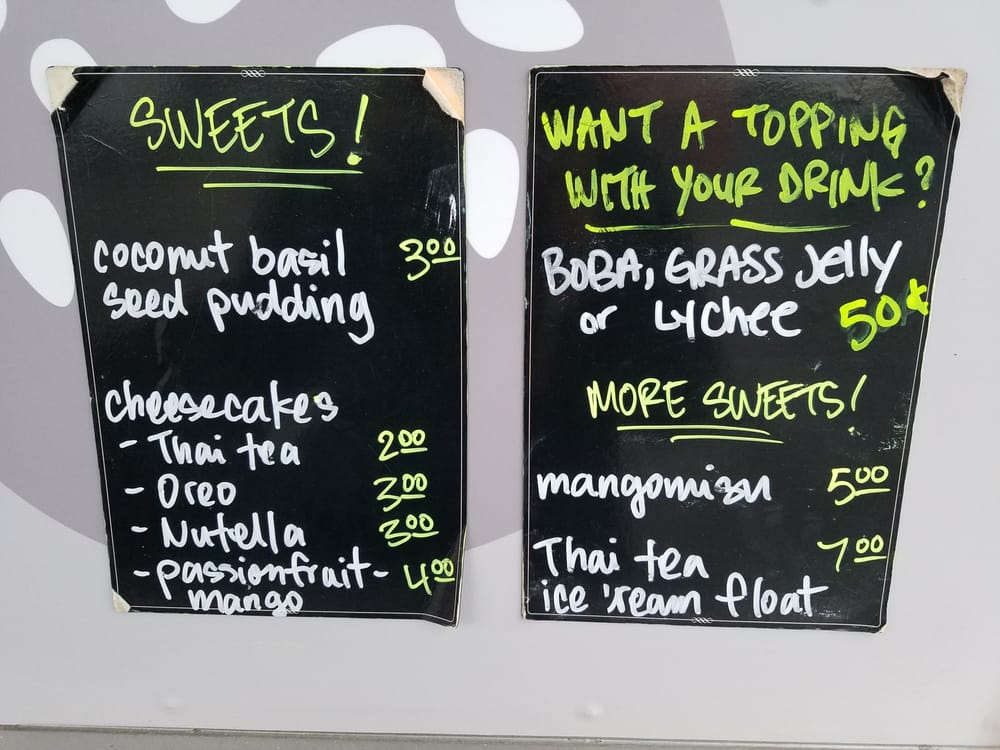 SWEETS!
coconut basil 3.00
seed pudding
cheesecakes
- Thai tea 2.00
- Oreo 3.00
- Nutella 3.00
- passionfruit- 4.00
mango
WANT A TOPPING
WITH YOUR DRINK?
BOBA, GRASS Jelly
or Lychee 50¢
MORE SWEETS!
mangomisu 5.00
Thai tea 7.00
ice 'ream float